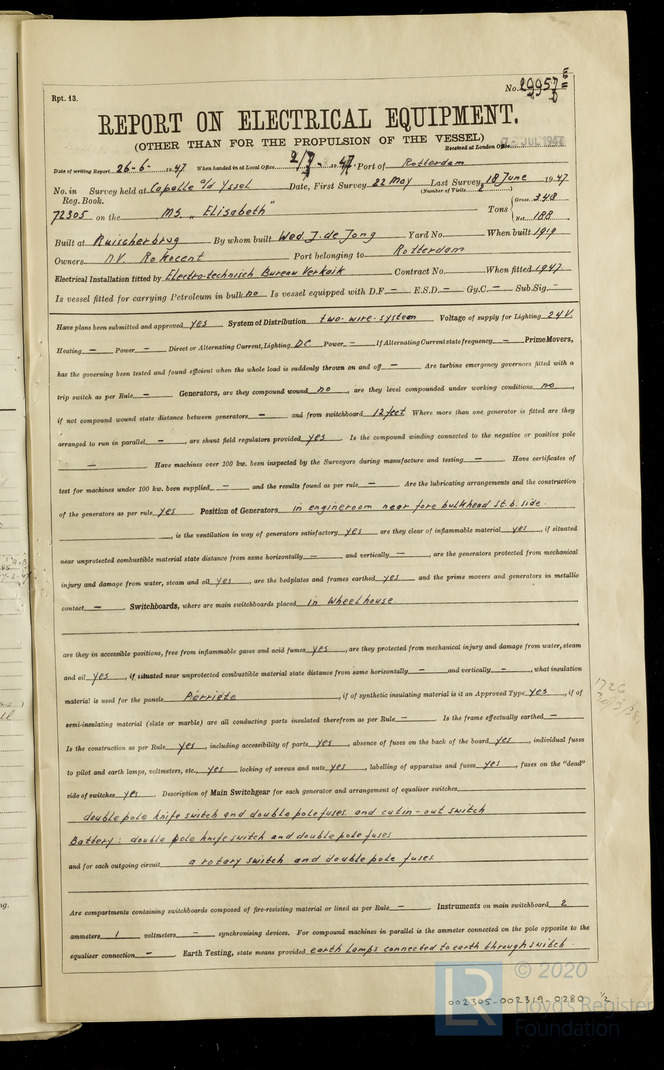 Rpt. 13.
No. 29957
REPORT ON ELECTRICAL EQUIPMENT.
(OTHER THAN FOR THE PROPULSION OF THE VESSEL)
Received at London Office
Date of writing Report 26-6-1947 When handed in at Local Office 2/7 1947 Port of Rotterdam
No. in Survey held at Capelle a/d Yssel Date, First Survey 22 May Last Survey 18 June 1947
Reg. Book. (Number of Visits 2)
72305 on the M.S. "Elisabeth" Tons Gross 348 Net 188
Built at Ruischerbrug By whom built Wed J. de Jong Yard No. When built 1919
Owners N.V. Rokocent Port belonging to Rotterdam
Electrical Installation fitted by Electro-technisch Bureau Verkaik Contract No. When fitted 1947
Is vessel fitted for carrying Petroleum in bulk no Is vessel equipped with D.F. — E.S.D. — Gy.C. — Sub.Sig. —
Have plans been submitted and approved yes System of Distribution two-wire-system Voltage of supply for Lighting 24V
Heating — Power — Direct or Alternating Current, Lighting DC Power — If Alternating Current state frequency — Prime Movers,
has the governing been tested and found efficient when the whole load is suddenly thrown on and off — Are turbine emergency governors fitted with a
trip switch as per Rule — Generators, are they compound wound no, are they level compounded under working conditions no,
if not compound wound state distance between generators — and from switchboard 12 feet Where more than one generator is fitted are they
arranged to run in parallel —, are shunt field regulators provided yes Is the compound winding connected to the negative or positive pole
— Have machines over 100 kw. been inspected by the Surveyors during manufacture and testing — Have certificates of
test for machines under 100 kw. been supplied — and the results found as per rule — Are the lubricating arrangements and the construction
of the generators as per rule yes Position of Generators in engineroom near fore bulkhead st.b. side.
, is the ventilation in way of generators satisfactory yes are they clear of inflammable material yes, if situated
near unprotected combustible material state distance from same horizontally — and vertically —, are the generators protected from mechanical
injury and damage from water, steam and oil yes, are the bedplates and frames earthed yes and the prime movers and generators in metallic
contact — Switchboards, where are main switchboards placed in Wheelhouse.
are they in accessible positions, free from inflammable gases and acid fumes yes, are they protected from mechanical injury and damage from water, steam
and oil yes, if situated near unprotected combustible material state distance from same horizontally — and vertically —, what insulation
material is used for the panels, if of synthetic insulating material is it an Approved Type yes, if of
semi-insulating material (slate or marble) are all conducting parts insulated therefrom as per Rule — Is the frame effectually earthed —
Is the construction as per Rule yes, including accessibility of parts yes, absence of fuses on the back of the board yes, individual fuses
to pilot and earth lamps, voltmeters, etc., yes locking of screws and nuts yes, labelling of apparatus and fuses yes, fuses on the "dead"
side of switches yes. Description of Main Switchgear for each generator and arrangement of equaliser switches
double pole knife switch and double pole fuses and cut in-out switch
Battery: double pole knife switch and double pole fuses
and for each outgoing circuit a rotary switch and double pole fuses
Are compartments containing switchboards composed of fire-resisting material or lined as per Rule — Instruments on main switchboard 2
ammeters 1 voltmeters — synchronising devices. For compound machines in parallel is the ammeter connected on the pole opposite to the
equaliser connection — Earth Testing, state means provided earth lamps connected to earth through switch
© 2020
Lloyd's Register
Foundation
LR
002305-002319-0280 1/2